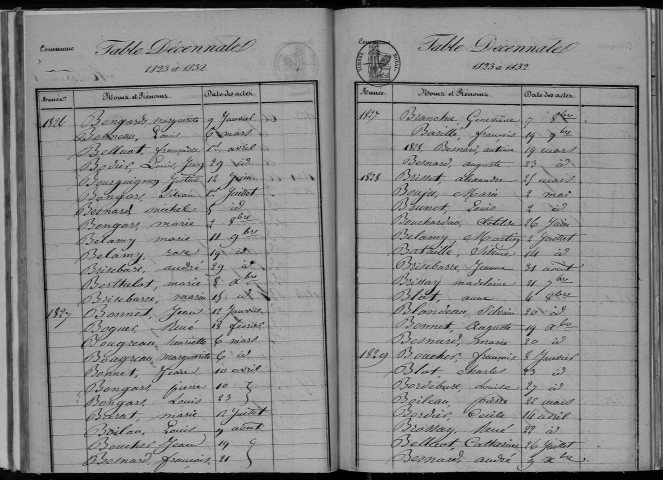 Commune
Table Décennale
1823 à 1832
Année
Noms et Prénoms
Date des actes
1826 Bongards marguerite 9 Janvier
Bonneau, Louis 6 mars
Belluot, françoise 1er avril
Bodiet, Louis, Jean 29 id
Bourguignon 12 Juin
Bongars, Silvain 1er Juillet
Besnard michel 5 id
Bongars, marie 2 8bre
Belamy marie 11 9bre
Belamy, rose 19 id
Brisebars, andré 29 id
Berthelot, marie 8 xbre
Brisebarre, marin 15 id
1827 Bonnet, Jean 12 Janvier
Boquet, René 18 février
Bougreau, henriette 6 mars
Bougreau, marguerite 6 id
Bonnet, Jean 10 avril
Bongars, pierre 10
Bongars, Louis 23
Barat, marie 12 Juillet
Boilau, Louis 9 aout
Boucher Jean 19
Besnard, françois, 21
Commune
TIMBRE ROYAL
Table Décennale
1823 à 1832
Année
Noms et Prénoms
Date des actes
1827 Blanchu, Geneviève 7 8bre
Barillé, françois 19 9bre
1828. Besnard, antoine 19 mars
Besnard, auguste 23 id
1828 Brisset, alexandre 25 mars
Bouju, Marie 2 mai
Brunet, Louis 2 id
Bouchardau, Clotilde 26 Juin
Belamy, Martin 2 Juillet
Bataille, Etienne 14 id
Brisebarre, Jeanne 31 aout
Brissay, madelaine 21 7bre
Blot, anne 4 8bre
Blondeau, Silvain 20 id
Bonnet, Auguste 19 xbre
Besnard, marie 20 id
1829 Boucher, françois 8 Janvier
Blot, charles 23 id
Bordebure, Louise 27 id
Boileau, pierre 22 mars
Bordié, Cécile 14 avril
Brossay, René 22 id
Belluot Catherine 26 Juillet
Besnard, andré 9 xbre